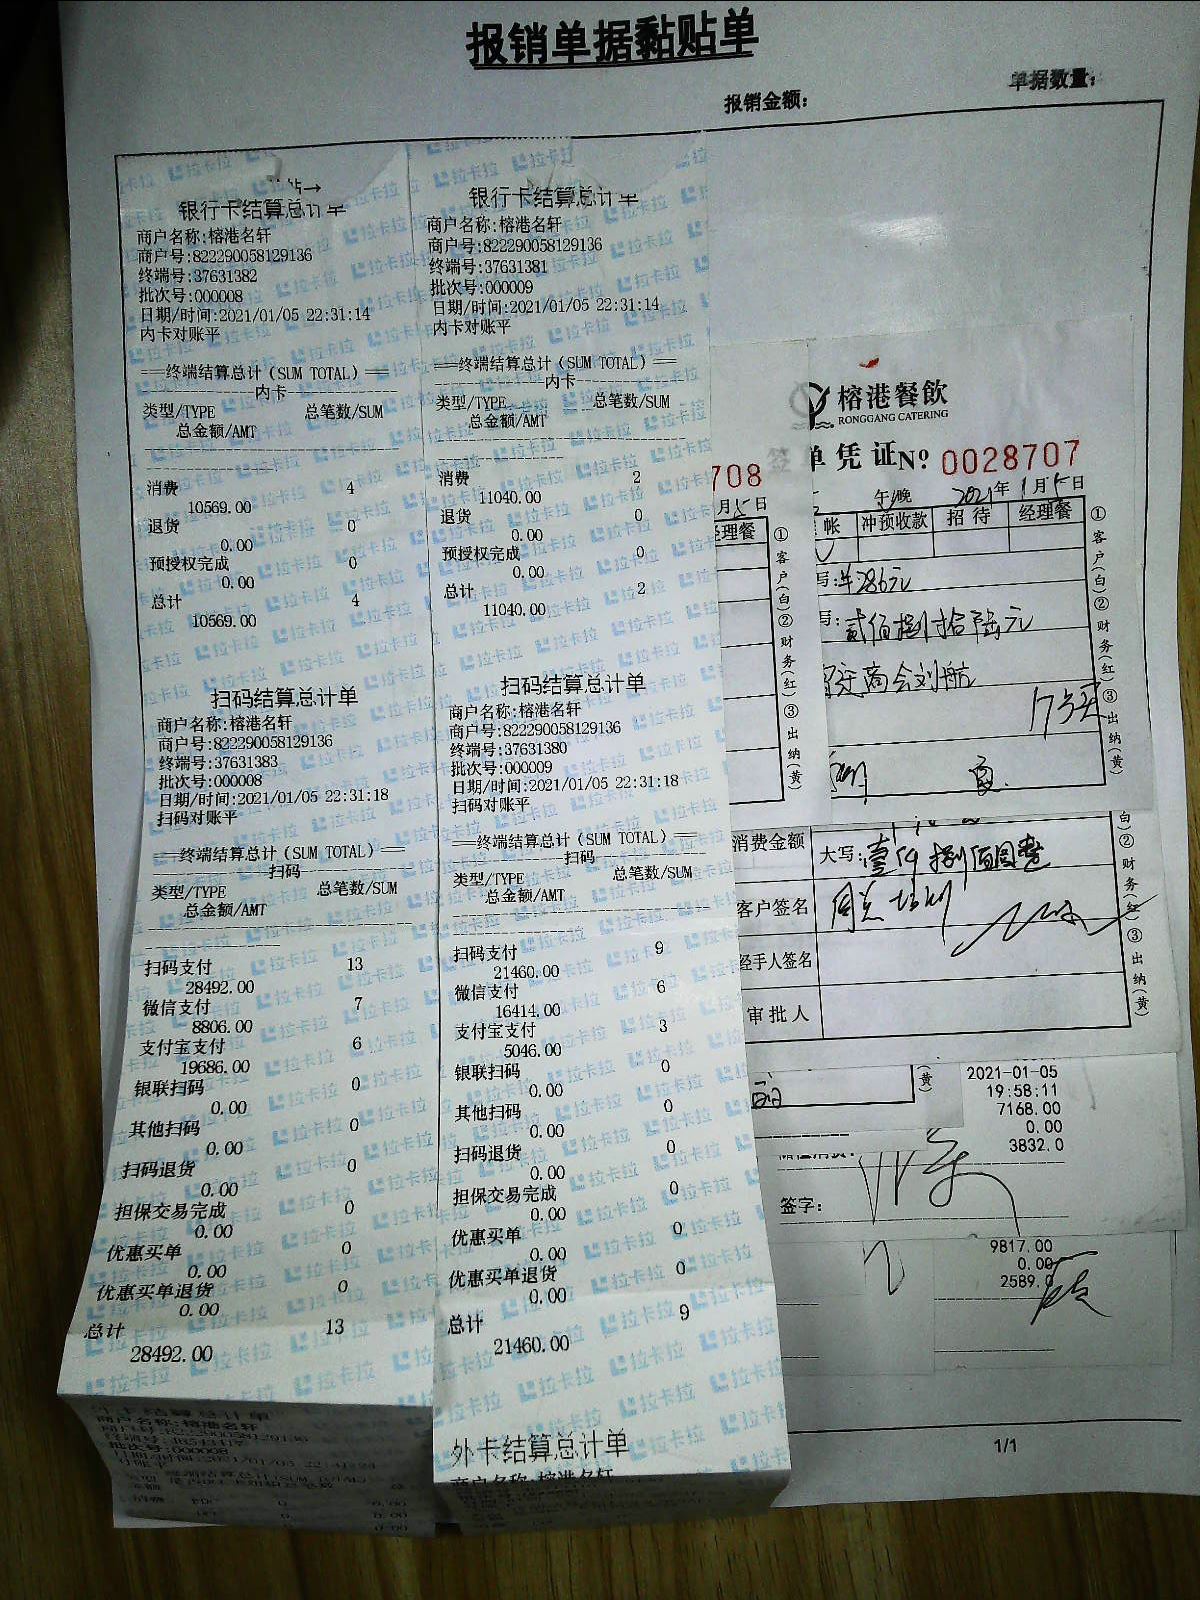 报销单据黏贴单
单据数量:
报销金额:
银行卡结算总计单
商户名称:榕港名轩
商户号:822290058129136
终端号:37631382
批次号:000008
日期/时间:2021/01/05 22:31:14
内卡对账平
===终端结算总计(SUM TOTAL)===
内卡
类型/TYPE 总笔数/SUM
总金额/AMT
消费 4
10569.00
退货 0
0.00
预授权完成 0
0.00
总计 4
10569.00
扫码结算总计单
商户名称:榕港名轩
商户号:822290058129136
终端号:37631383
批次号:000008
日期/时间:2021/01/05 22:31:18
扫码对账平
===终端结算总计(SUM TOTAL)===
扫码
类型/TYPE 总笔数/SUM
总金额/AMT
扫码支付 13
28492.00
微信支付 7
8806.00
支付宝支付 6
19686.00
银联扫码 0
0.00
其他扫码 0
0.00
扫码退货 0
0.00
担保交易完成 0
0.00
优惠买单 0
0.00
优惠买单退货 0
0.00
总计 13
28492.00
外卡结算总计单
商户名称:榕港名轩
批次号:000008
银行卡结算总计单
商户名称:榕港名轩
商户号:822290058129136
终端号:37631381
批次号:000009
日期/时间:2021/01/05 22:31:14
内卡对账平
===终端结算总计(SUM TOTAL)===
内卡
类型/TYPE 总笔数/SUM
总金额/AMT
消费 2
11040.00
退货 0
0.00
预授权完成 0
0.00
总计 2
11040.00
扫码结算总计单
商户名称:榕港名轩
商户号:822290058129136
终端号:37631380
批次号:000009
日期/时间:2021/01/05 22:31:18
扫码对账平
===终端结算总计(SUM TOTAL)===
扫码
类型/TYPE 总笔数/SUM
总金额/AMT
扫码支付 9
21460.00
微信支付 6
16414.00
支付宝支付 3
5046.00
银联扫码 0
0.00
其他扫码 0
0.00
扫码退货 0
0.00
担保交易完成 0
0.00
优惠买单 0
0.00
优惠买单退货 0
0.00
总计 9
21460.00
外卡结算总计单
商户名称:榕港名轩
708
月5日
经理餐
①客户(白)②财务(红)③出纳(黄)
榕港餐飲
RONGGANG CATERING
签单凭证No 0028707
午/晚 2021年1月5日
帐 冲预收款 招待 经理餐
写:¥286元
写:贰佰捌拾陆元
商会刘航
①客户(白)②财务(红)③出纳(黄)
消费金额 大写:壹仟捌佰圆整
客户签名
经手人签名
审批人
白)②财务(红)③出纳(黄)
(黄)
2021-01-05
19:58:11
7168.00
0.00
3832.0
签字:
9817.00
0.00
2589.0
1/1